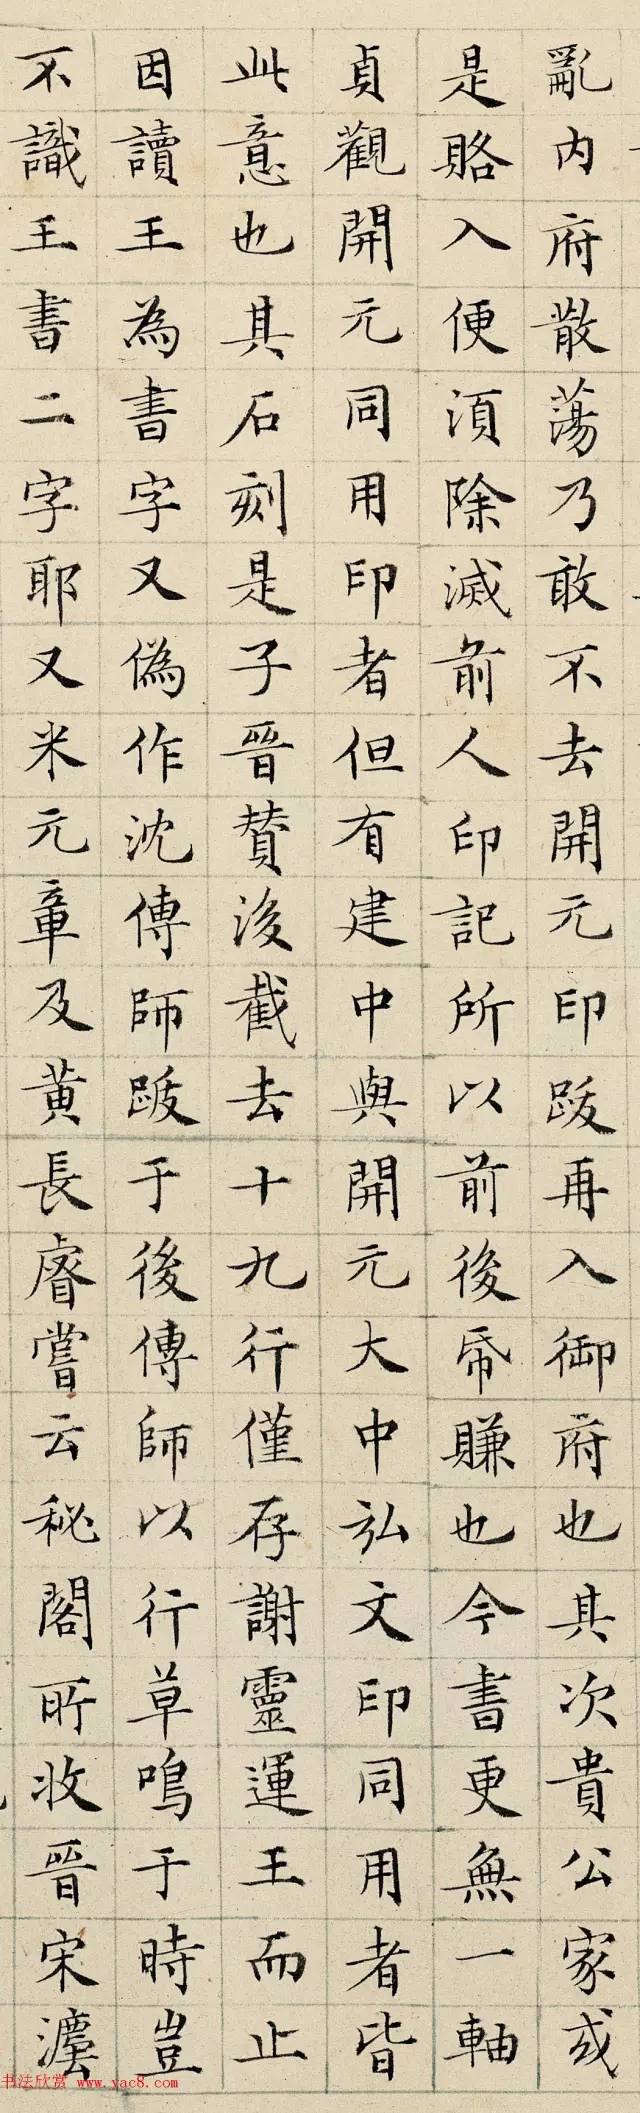 亂内府散蕩乃敢不去開元印跋再入御府也其次貴公家或
是賂入便湏除滅前人印記所以前後帋賺也今書更無一軸
貞觀開元同用印者但有建中與開元大中弘文印同用者皆
此意也其石刻是子晉賛後截去十九行僅存謝靈運王而止
因讀王為書字又偽作沈傳師跋于後傳師以行草鳴于時豈
不識王書二字耶又米元章及黄長睿嘗云秘閣所收晉宋灋
书法欣赏 www.yac8.com